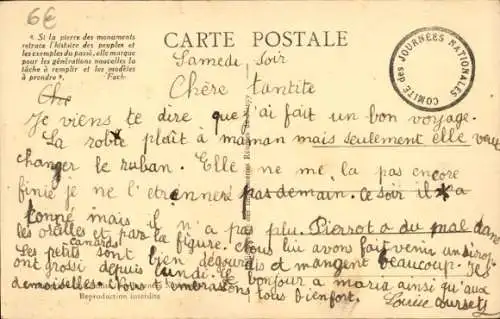 6€
« Si la pierre des monuments
retrace l'histoire des peuples et
les exemples du passé, elle marque
pour les générations nouvelles la
tâche à remplir et les modèles
à prendre ». Foch.
CARTE POSTALE
COMITÉ des JOURNÉES NATIONALES
Samedi soir
Chère tantite
Je viens te dire que j'ai fait un bon voyage.
La robe plaît à maman mais seulement elle veu
changer le ruban. Elle ne me la pas encore
finie je ne l'étrenneré pas demain. Ce soir il a
tonné mais il n'a pas plu. Pierrot a du mal dans
les oreilles et par la figure. Nous lui avons fait venir un sirop.
Les petits canards sont bien dégourdis et mangent beaucoup. Ils
ont grossi depuis lundi. Le bonjour a maria ainsi qu'aux
demoiselles. Nous t'embrassons tous bien fort.
Reproduction interdite
Louise